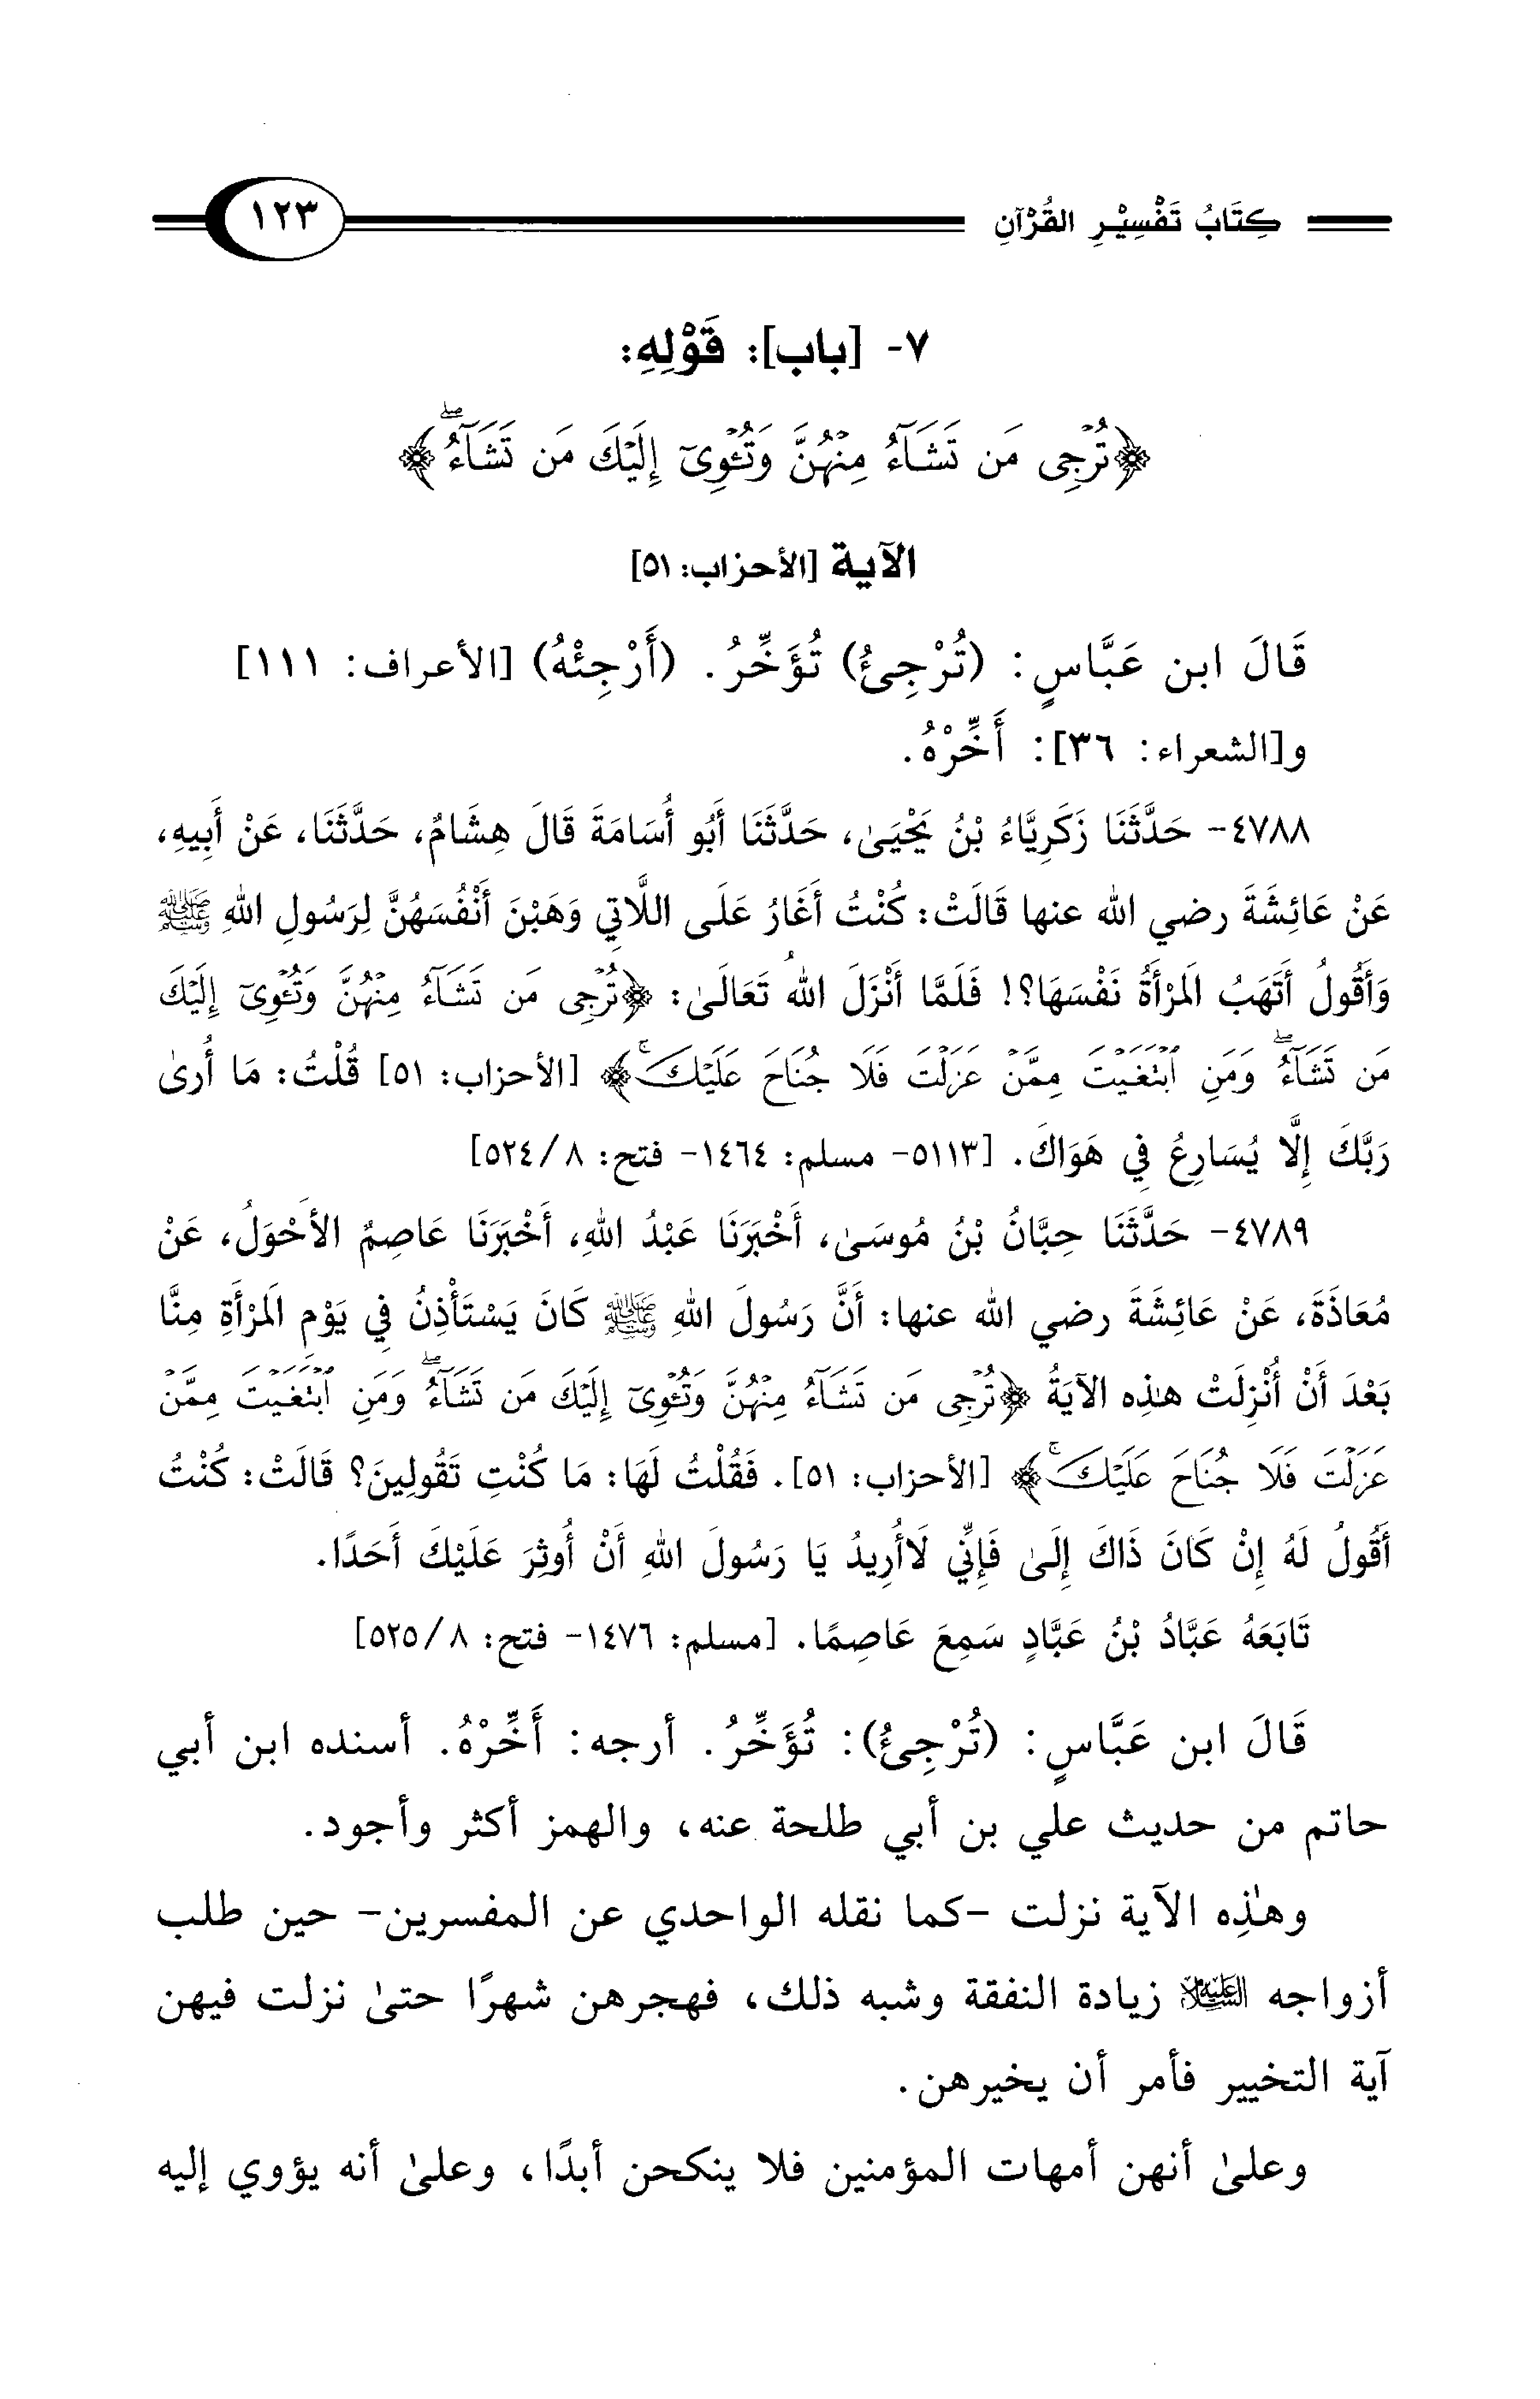 كِتَابُ تَفْسِيْرِ القُرْآنِ ١٢٣
٧- [باب]: قَوْلِهِ:
﴿تُرْجِى مَن تَشَآءُ مِنْهُنَّ وَتُـْٔوِىٓ إِلَيْكَ مَن تَشَآءُۖ﴾
الآية [الأحزاب: ٥١]
قَالَ ابن عَبَّاسٍ: (تُرْجِئُ) تُؤَخِّرُ. (أَرْجِئْهُ) [الأعراف: ١١١]
و[الشعراء: ٣٦]: أَخِّرْهُ.
٤٧٨٨- حَدَّثَنَا زَكَرِيَّاءُ بْنُ يَحْيَىٰ، حَدَّثَنَا أَبُو أُسَامَةَ قَالَ هِشَامٌ، حَدَّثَنَا، عَنْ أَبِيهِ،
عَنْ عَائِشَةَ رضي الله عنها قَالَتْ: كُنْتُ أَغَارُ عَلَى اللَّاتِي وَهَبْنَ أَنْفُسَهُنَّ لِرَسُولِ اللهِ ﷺ
وَأَقُولُ أَتَهَبُ المَرْأَةُ نَفْسَهَا؟! فَلَمَّا أَنْزَلَ اللهُ تَعَالَىٰ: ﴿تُرْجِى مَن تَشَآءُ مِنْهُنَّ وَتُـْٔوِىٓ إِلَيْكَ
مَن تَشَآءُۖ وَمَنِ ٱبْتَغَيْتَ مِمَّنْ عَزَلْتَ فَلَا جُنَاحَ عَلَيْكَۚ﴾ [الأحزاب: ٥١] قُلْتُ: مَا أُرىٰ
رَبَّكَ إِلَّا يُسَارِعُ فِي هَوَاكَ. [٥١١٣- مسلم: ١٤٦٤- فتح: ٨/ ٥٢٤]
٤٧٨٩- حَدَّثَنَا حِبَّانُ بْنُ مُوسَىٰ، أَخْبَرَنَا عَبْدُ اللهِ، أَخْبَرَنَا عَاصِمٌ الأَحْوَلُ، عَنْ
مُعَاذَةَ، عَنْ عَائِشَةَ رضي الله عنها: أَنَّ رَسُولَ اللهِ ﷺ كَانَ يَسْتَأْذِنُ فِي يَوْمِ المَرْأَةِ مِنَّا
بَعْدَ أَنْ أُنْزِلَتْ هٰذِه الآيَةُ ﴿تُرْجِى مَن تَشَآءُ مِنْهُنَّ وَتُـْٔوِىٓ إِلَيْكَ مَن تَشَآءُۖ وَمَنِ ٱبْتَغَيْتَ مِمَّنْ
عَزَلْتَ فَلَا جُنَاحَ عَلَيْكَۚ﴾ [الأحزاب: ٥١]. فَقُلْتُ لَهَا: مَا كُنْتِ تَقُولِينَ؟ قَالَتْ: كُنْتُ
أَقُولُ لَهُ إِنْ كَانَ ذَاكَ إِلَىٰ فَإِنِّي لَاأُرِيدُ يَا رَسُولَ اللهِ أَنْ أُوثِرَ عَلَيْكَ أَحَدًا.
تَابَعَهُ عَبَّادُ بْنُ عَبَّادٍ سَمِعَ عَاصِمًا. [مسلم: ١٤٧٦- فتح: ٨/ ٥٢٥]
قَالَ ابن عَبَّاسٍ: (تُرْجِئُ): تُؤَخِّرُ. أرجه: أَخِّرْهُ. أسنده ابن أبي
حاتم من حديث علي بن أبي طلحة عنه، والهمز أكثر وأجود.
وهٰذِه الآية نزلت -كما نقله الواحدي عن المفسرين- حين طلب
أزواجه عليه السلام زيادة النفقة وشبه ذلك، فهجرهن شهرًا حتىٰ نزلت فيهن
آية التخيير فأمر أن يخيرهن.
وعلىٰ أنهن أمهات المؤمنين فلا ينكحن أبدًا، وعلىٰ أنه يؤوي إليه